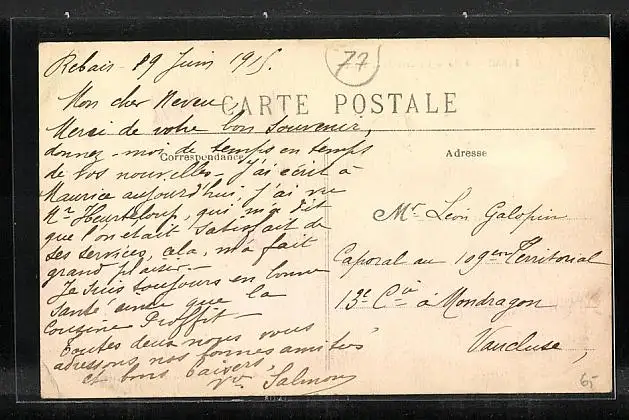 Rebais - 19 Juin 1915.
77
Mon cher Neveu
CARTE POSTALE
Merci de votre bon souvenir,
donnez-moi de temps en temps
Correspondance
Adresse
de vos nouvelles - j'ai écrit à
Maurice aujourd'hui j'ai vu
Mr Heurteloup, qui m'a dit
que l'on était satisfait de
ses services, cela, m'a fait
grand plaisir. -
Je suis toujours en bonne
santé ainsi que la
Cousine Proffit -
toutes deux nous vous
adressons nos bonnes amitiés
et bons baisers,
Vve Salmon
Mr Léon Galopin
Caporal au 109em Territorial
13e Cie à Mondragon
Vaucluse,
65